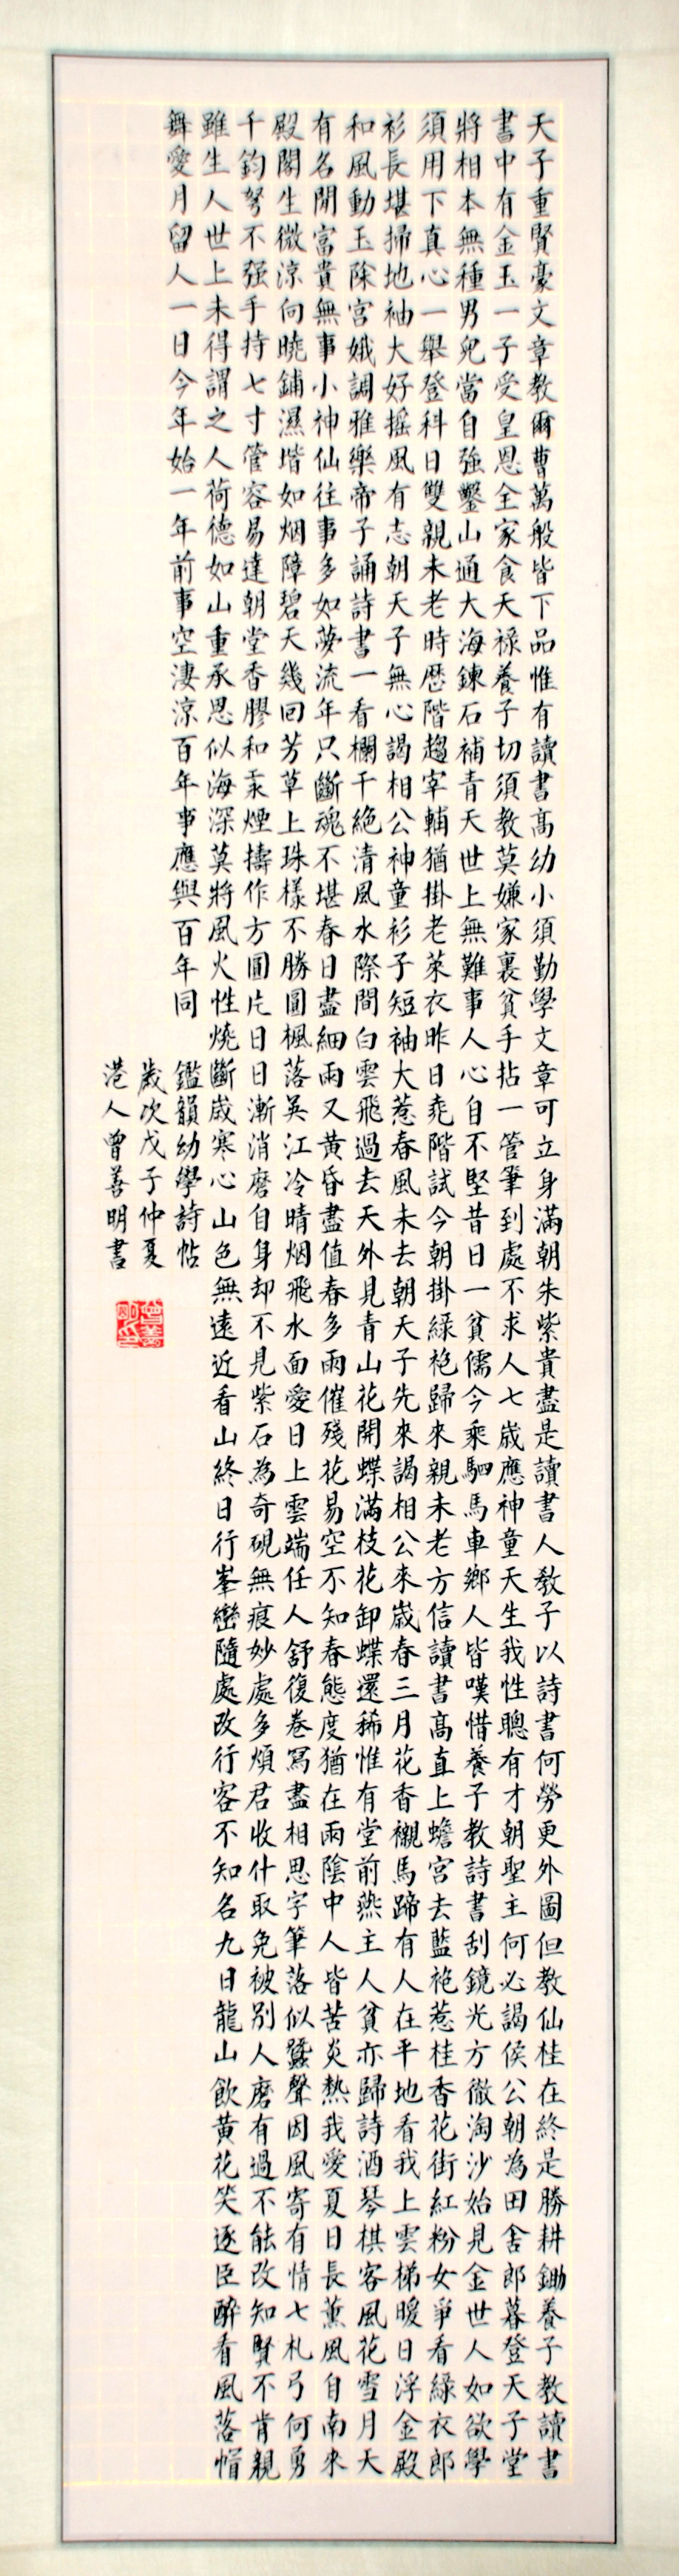 天子重賢豪文章教爾曹萬般皆下品惟有讀書高幼小須勤學文章可立身滿朝朱紫貴盡是讀書人教子以詩書何勞更外圖但教仙桂在終是勝耕鋤養子教讀書
書中有金玉一子受皇恩全家食天祿養子切須教莫嫌家裏貧手拈一管筆到處不求人七歲應神童天生我性聰有才朝聖主何必謁侯公朝為田舍郎暮登天子堂
將相本無種男兒當自強鑿山通大海鍊石補青天世上無難事人心自不堅昔日一貧儒今乘駟馬車鄉人皆嘆惜養子教詩書刮鏡光方徹淘沙始見金世人如欲學
須用下真心一舉登科日雙親未老時歷階趨宰輔猶掛老萊衣昨日乖階試今朝掛綠袍歸來親未老方信讀書高直上蟾宮去藍袍惹桂香花街紅粉女爭看綠衣郎
衫長堪掃地袖大好搖風有志朝天子無心謁相公神童衫子短袖大惹春風未去朝天子先來謁相公來歲春三月花香襯馬蹄有人在平地看我上雲梯暖日浮金殿
和風動玉除宮娥調雅樂帝子誦詩書一看欄干絕清風水際間白雲飛過去天外見青山花開蝶滿枝花卸蝶還稀惟有堂前燕主人貧亦歸詩酒琴棋客風花雪月天
有名開富貴無事小神仙往事多如夢流年只斷魂不堪春日盡細雨又黃昏盡值春多雨催殘花易空不知春態度猶在雨陰中人皆苦炎熱我愛夏日長薰風自南來
殿閣生微涼向曉鋪濕堦如烟障碧天幾回芳草上珠樣不勝圓楓落吳江冷晴烟飛水面愛日上雲端任人舒復卷寫盡相思字筆落似蠶聲因風寄有情七札弓何勇
千鈞弩不强手持七寸管容易達朝堂香膠和汞煙擣作方圓片日日漸消磨自身却不見紫石為奇硯無痕妙處多煩君收什取免被別人磨有過不能改知賢不肯親
雖生人世上未得謂之人荷德如山重承恩似海深莫將風火性燒斷歲寒心山色無遠近看山終日行峯巒隨處改行客不知名九日龍山飲黃花笑逐臣醉看風落帽
舞愛月留人一日今年始一年前事空淒涼百年事應與百年同
鑑韻幼學詩帖
歲次戊子仲夏
港人曾善明書
曾善明印